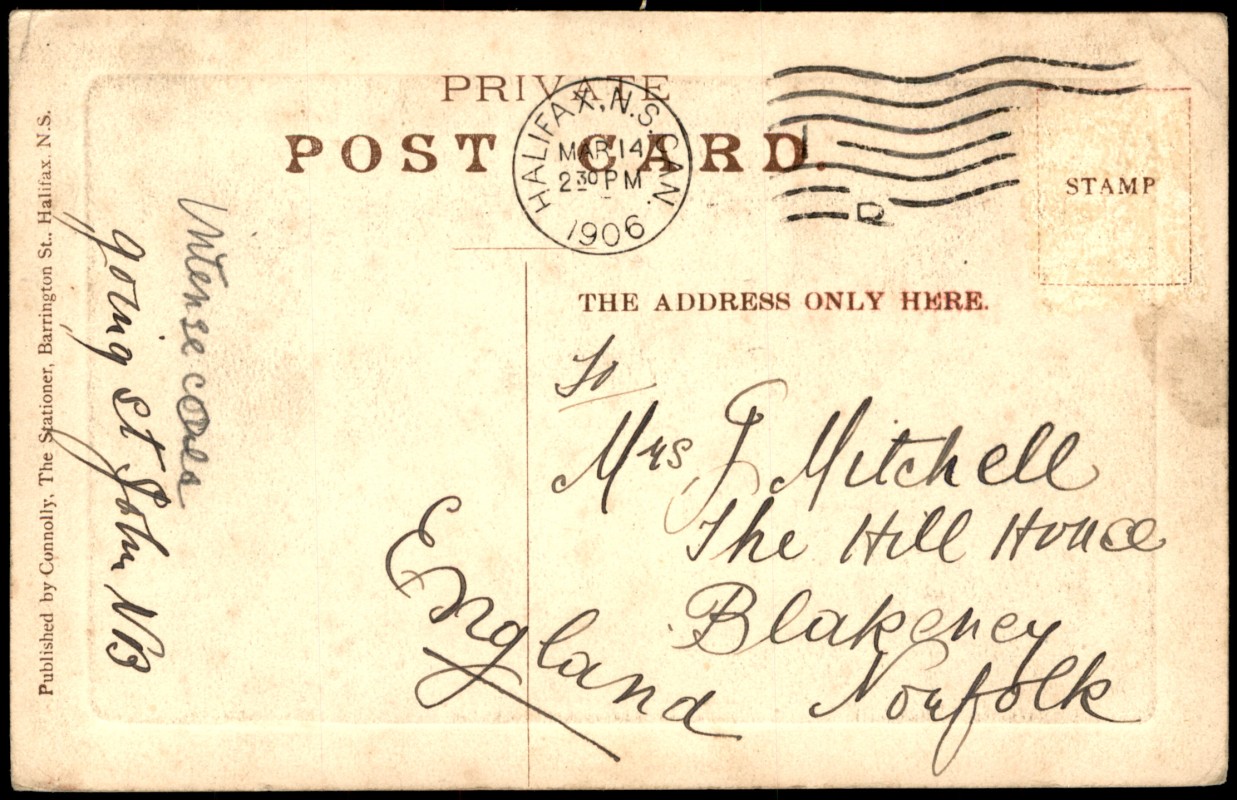 PRIVATE
POST CARD.
HALIFAX, N.S. CAN.
MAR 14
2 30 PM
1906
D
STAMP
THE ADDRESS ONLY HERE.
To
Mrs J Mitchell
The Hill House
Blakeney
Norfolk
England
Intense
going St John NB
Published by Connolly, The Stationer, Barrington St., Halifax. N.S.